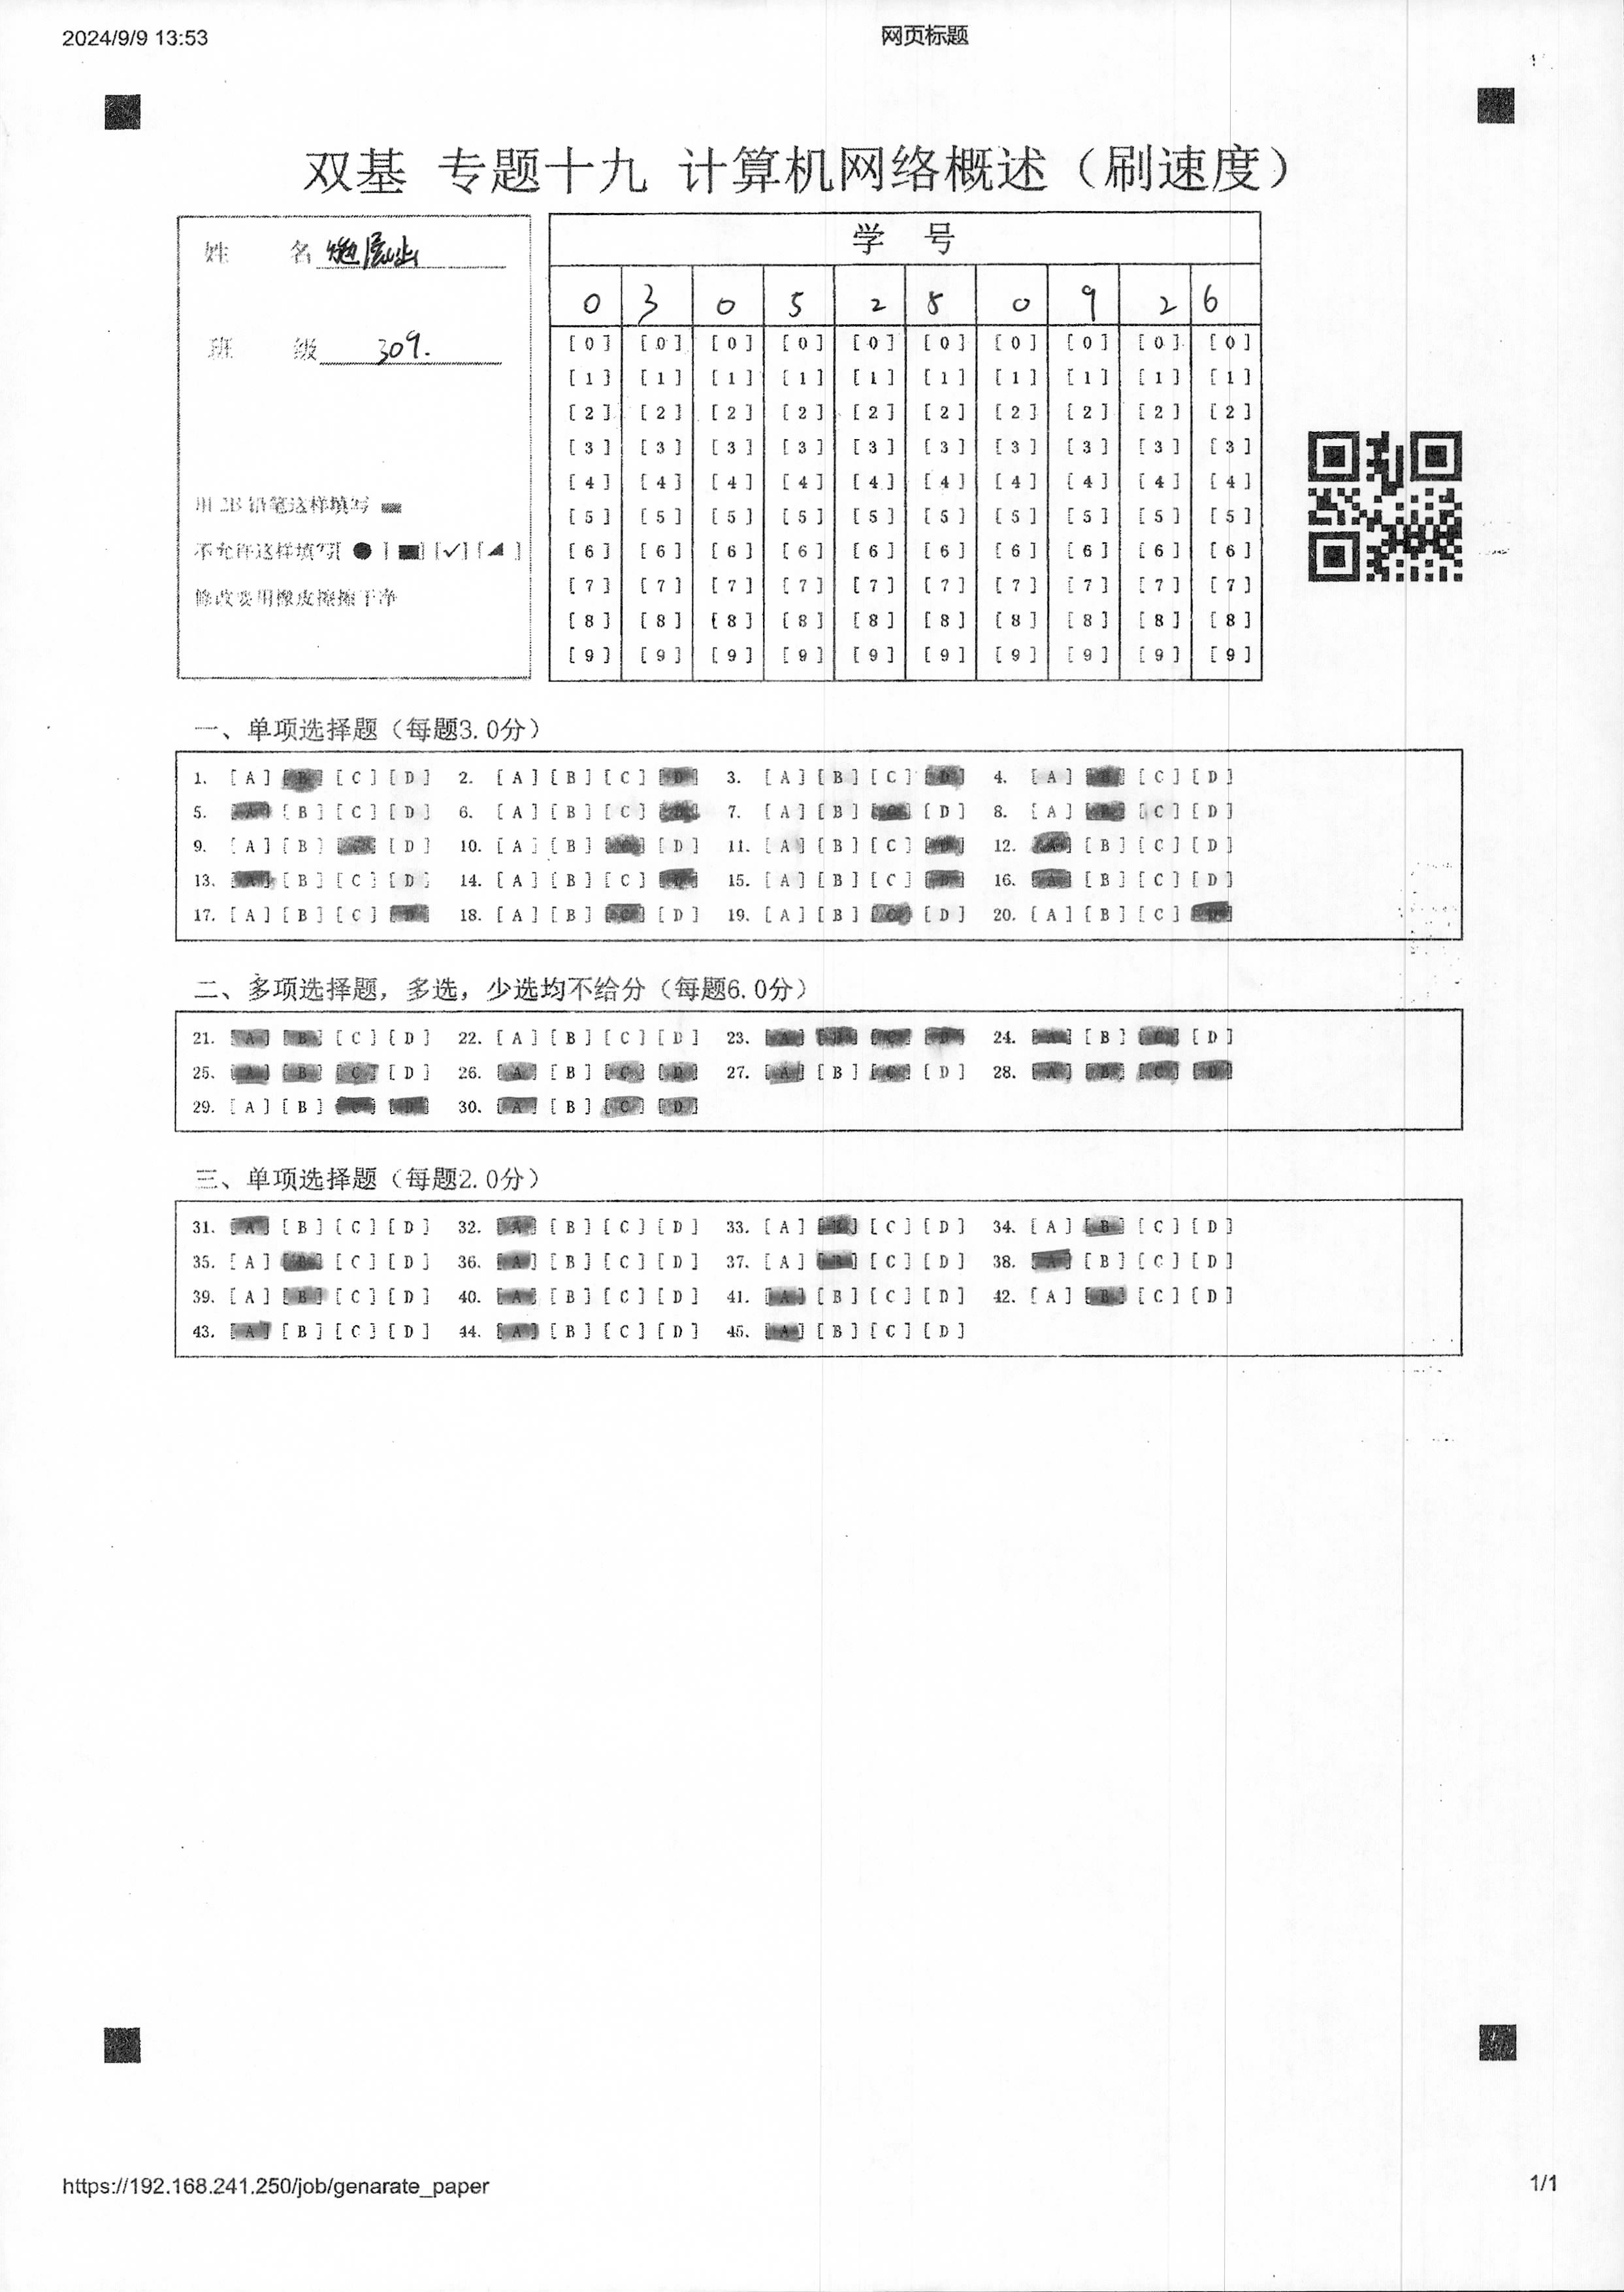 2024/9/9 13:53 网页标题
双基 专题十九 计算机网络概述（刷速度）
姓 名
班 级 309.
用 2B 铅笔这样填写
不允许这样填写[ ● ] [■] [✓] [◢ ]
修改要用橡皮擦擦干净
学 号
0 3 0 5 2 8 0 9 2 6
[0] [0] [0] [0] [0] [0] [0] [0] [0] [0]
[1] [1] [1] [1] [1] [1] [1] [1] [1] [1]
[2] [2] [2] [2] [2] [2] [2] [2] [2] [2]
[3] [3] [3] [3] [3] [3] [3] [3] [3] [3]
[4] [4] [4] [4] [4] [4] [4] [4] [4] [4]
[5] [5] [5] [5] [5] [5] [5] [5] [5] [5]
[6] [6] [6] [6] [6] [6] [6] [6] [6] [6]
[7] [7] [7] [7] [7] [7] [7] [7] [7] [7]
[8] [8] [8] [8] [8] [8] [8] [8] [8] [8]
[9] [9] [9] [9] [9] [9] [9] [9] [9] [9]
一、单项选择题（每题3.0分）
1. [A] [B] [C] [D] 2. [A] [B] [C] [D] 3. [A] [B] [C] [D] 4. [A] [B] [C] [D]
5. [A] [B] [C] [D] 6. [A] [B] [C] [D] 7. [A] [B] [C] [D] 8. [A] [B] [C] [D]
9. [A] [B] [C] [D] 10. [A] [B] [C] [D] 11. [A] [B] [C] [D] 12. [A] [B] [C] [D]
13. [A] [B] [C] [D] 14. [A] [B] [C] [D] 15. [A] [B] [C] [D] 16. [A] [B] [C] [D]
17. [A] [B] [C] [D] 18. [A] [B] [C] [D] 19. [A] [B] [C] [D] 20. [A] [B] [C] [D]
二、多项选择题，多选，少选均不给分（每题6.0分）
21. [A] [B] [C] [D] 22. [A] [B] [C] [D] 23. [A] [B] [C] [D] 24. [A] [B] [C] [D]
25. [A] [B] [C] [D] 26. [A] [B] [C] [D] 27. [A] [B] [C] [D] 28. [A] [B] [C] [D]
29. [A] [B] [C] [D] 30. [A] [B] [C] [D]
三、单项选择题（每题2.0分）
31. [A] [B] [C] [D] 32. [A] [B] [C] [D] 33. [A] [B] [C] [D] 34. [A] [B] [C] [D]
35. [A] [B] [C] [D] 36. [A] [B] [C] [D] 37. [A] [B] [C] [D] 38. [A] [B] [C] [D]
39. [A] [B] [C] [D] 40. [A] [B] [C] [D] 41. [A] [B] [C] [D] 42. [A] [B] [C] [D]
43. [A] [B] [C] [D] 44. [A] [B] [C] [D] 45. [A] [B] [C] [D]
https://192.168.241.250/job/genarate_paper 1/1